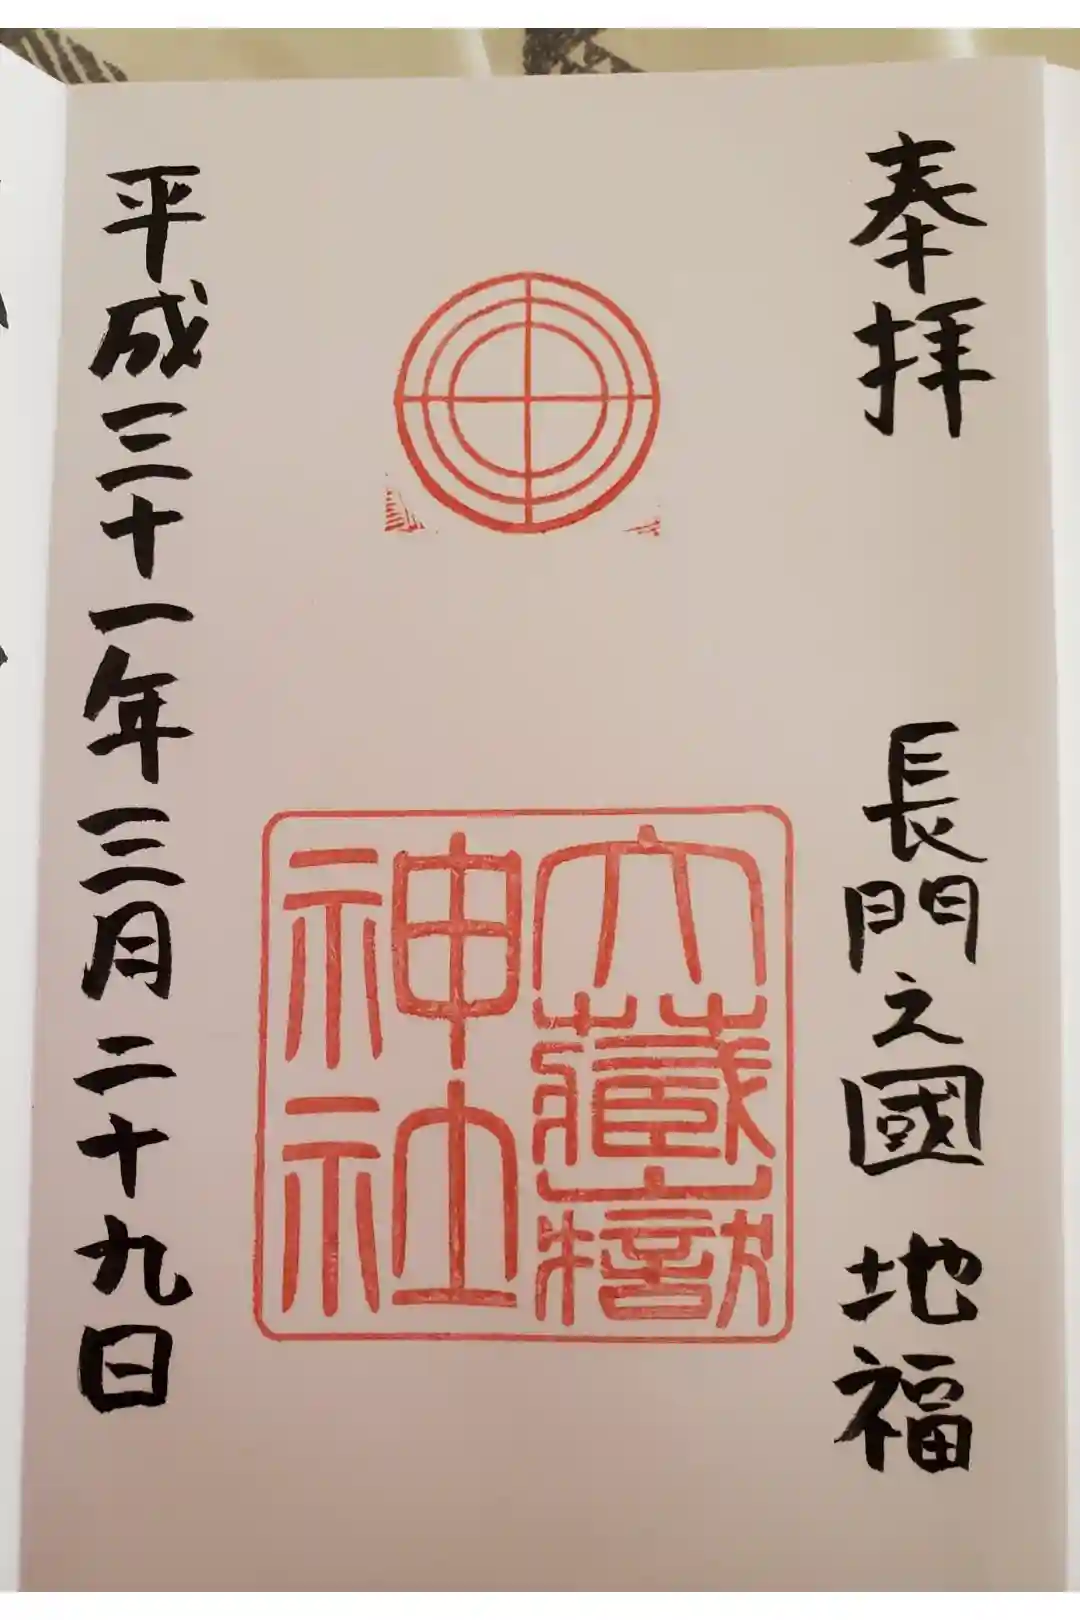 奉拝 長門之國 地福
大藏嶽
神社
平成三十一年三月二十九日